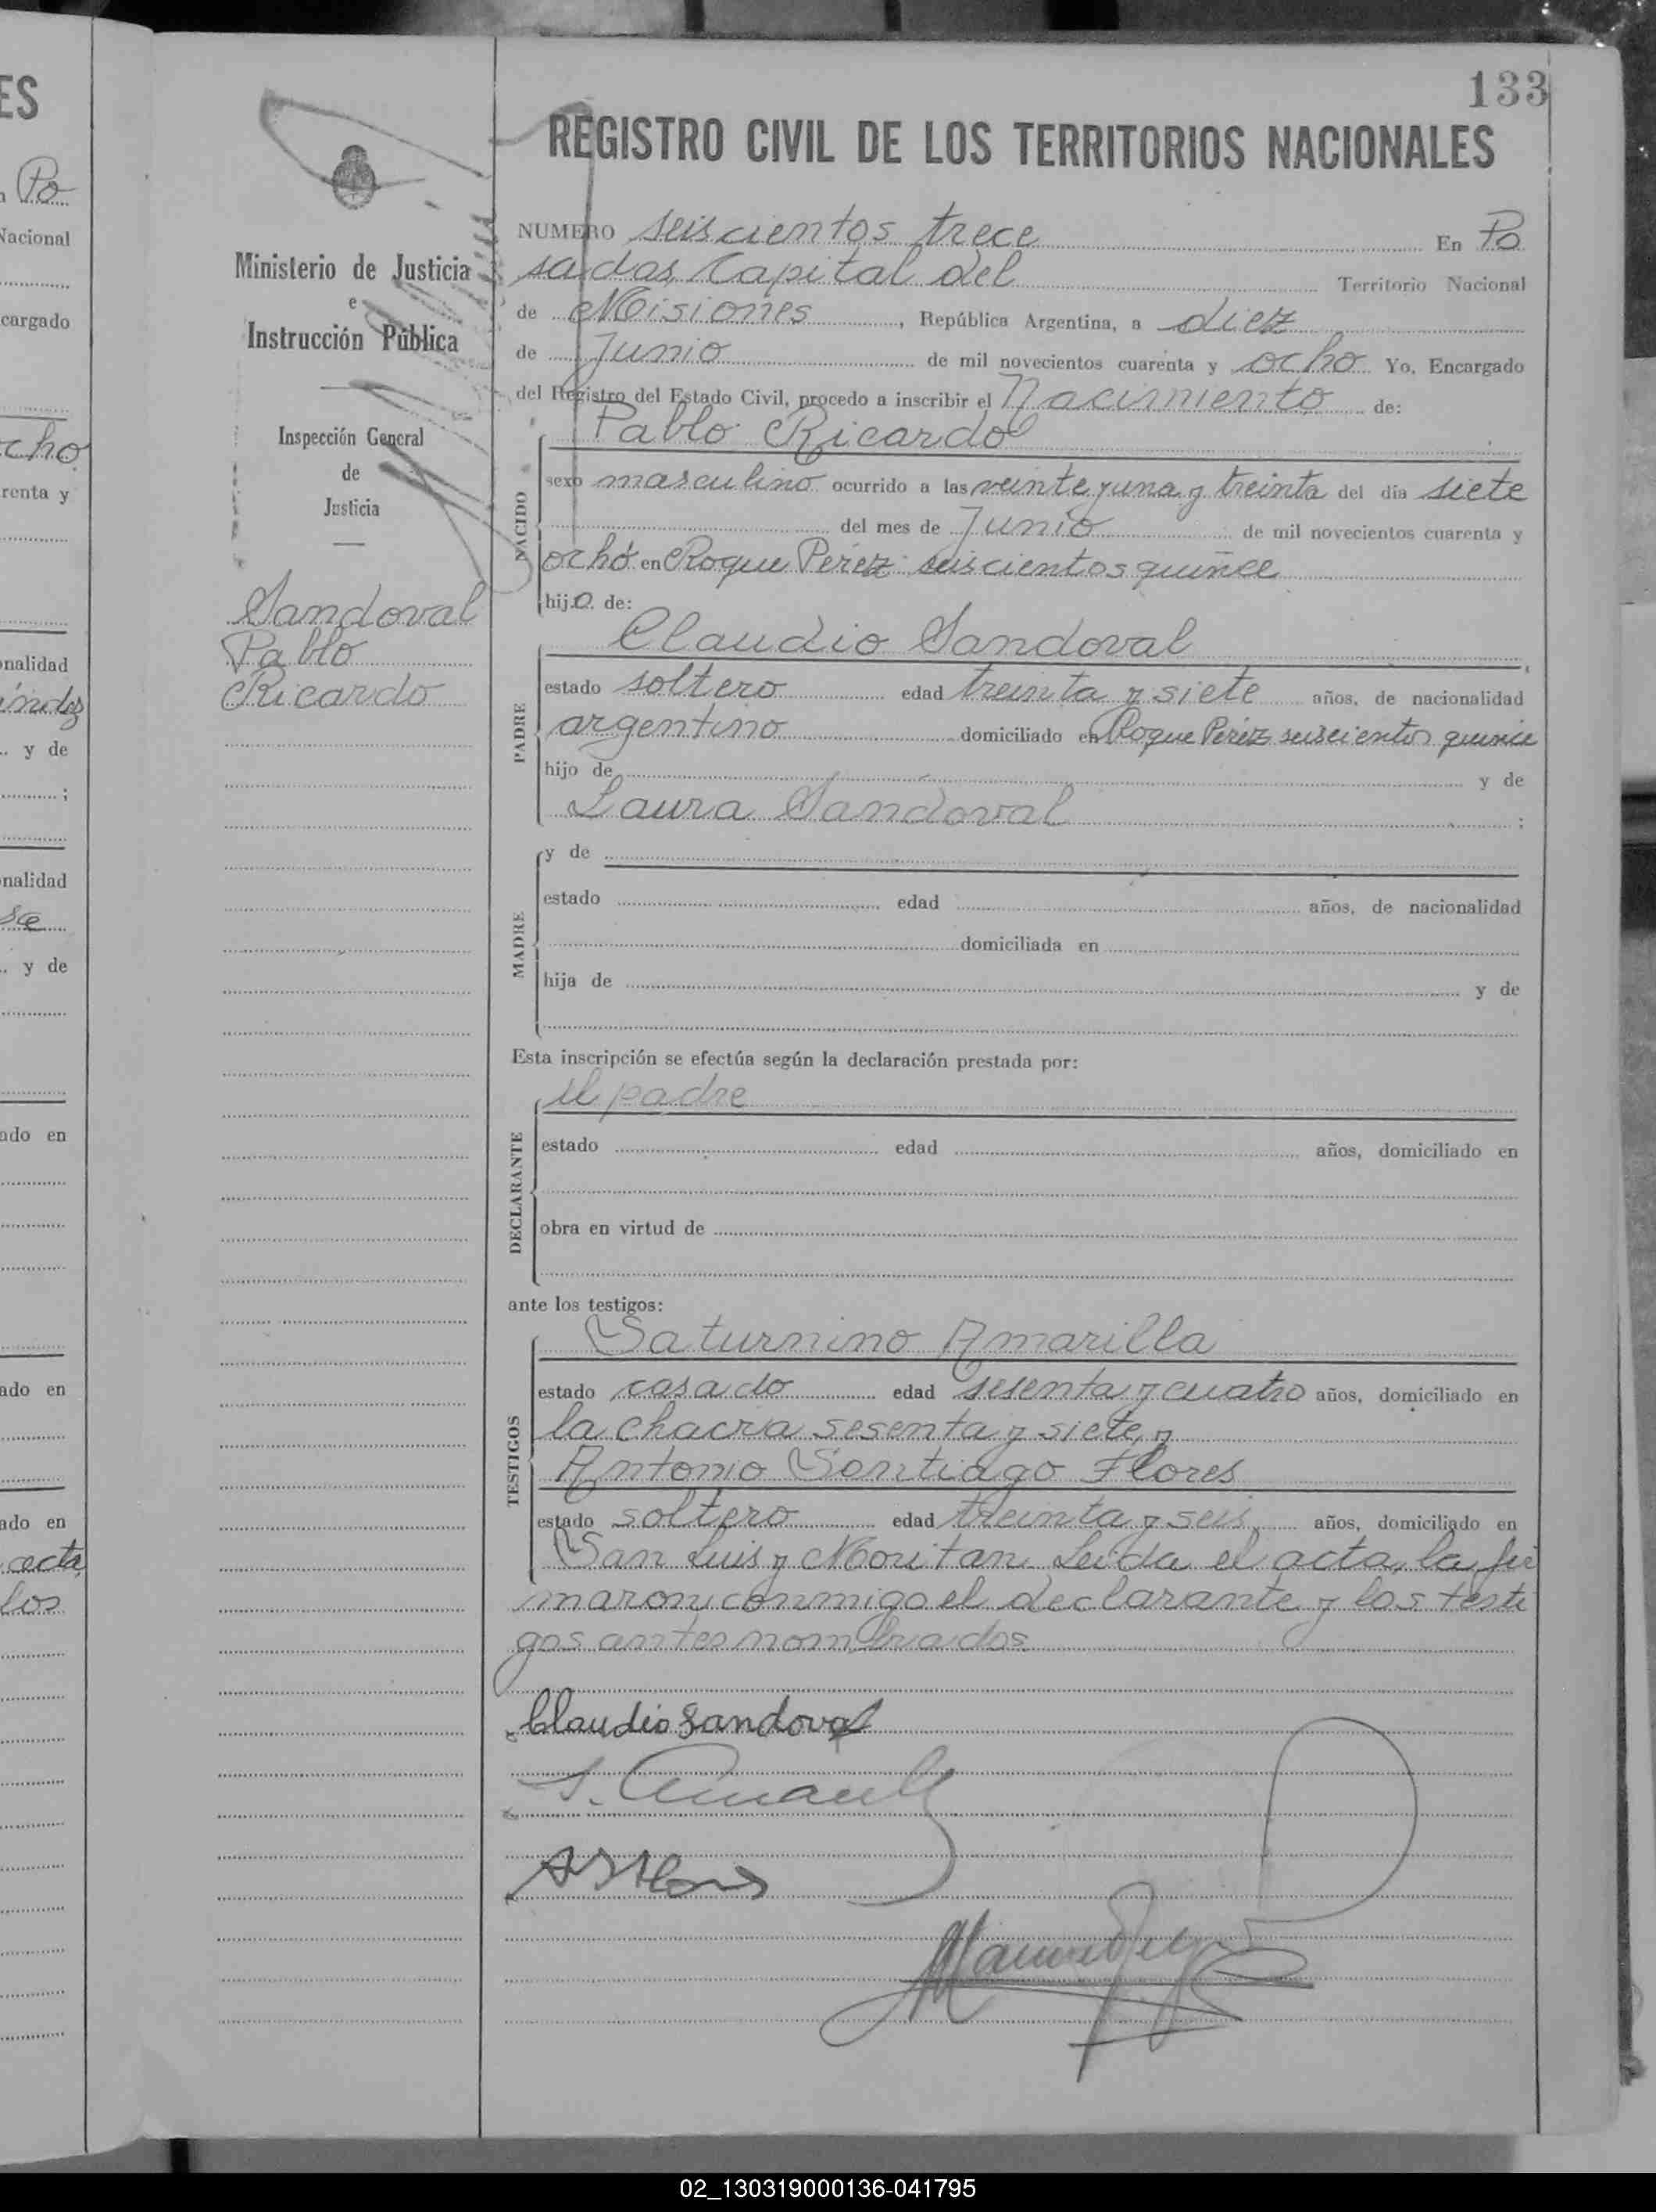 133
REGISTRO CIVIL DE LOS TERRITORIOS NACIONALES
Ministerio de Justicia
e
Instrucción Pública
Inspección General
de
Justicia
Sandoval
Pablo
Ricardo
NUMERO seiscientos trece En Po
sadas, Capital del Territorio Nacional
de Misiones, República Argentina, a diez
de Junio de mil novecientos cuarenta y ocho Yo, Encargado
del Registro del Estado Civil, procedo a inscribir el Nacimiento de:
Pablo Ricardo
NACIDO
sexo masculino ocurrido a las veinte y una y treinta del día siete
del mes de Junio de mil novecientos cuarenta y
ocho en Roque Pérez seiscientos quince
hijo de:
Claudio Sandoval
PADRE
estado soltero edad treinta y siete años, de nacionalidad
argentino domiciliado en Roque Pérez seiscientos quince
hijo de y de
Laura Sandoval ;
y de
MADRE
estado edad años, de nacionalidad
domiciliada en
hija de y de
Esta inscripción se efectúa según la declaración prestada por:
el padre
DECLARANTE
estado edad años, domiciliado en
obra en virtud de
ante los testigos:
Saturnino Amarilla
TESTIGOS
estado casado edad sesenta y cuatro años, domiciliado en
la chacra sesenta y siete, y
Antonio Santiago Flores
estado soltero edad treinta y seis años, domiciliado en
San Luis y Leida el acta, la fir
maron conmigo el declarante y los testi
gos antes nombrados
Claudio Sandoval
02_130319000136-041795